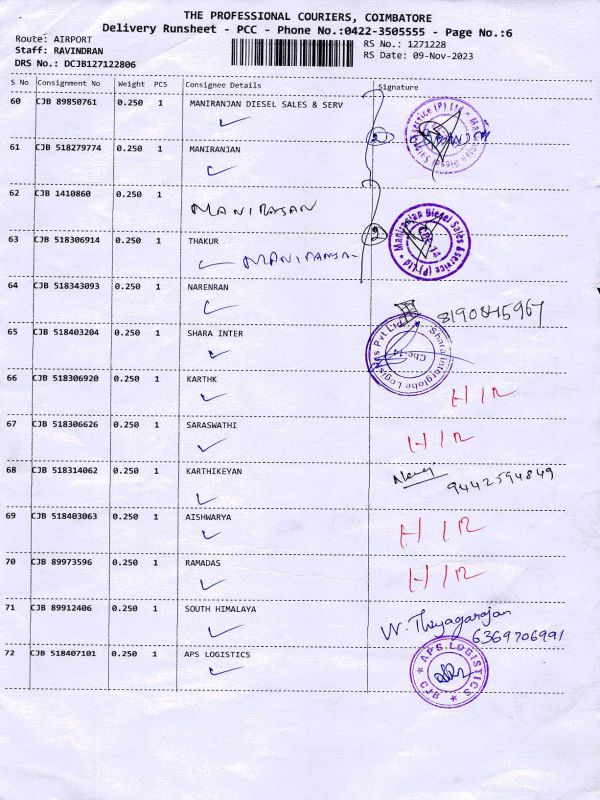 THE PROFESSIONAL COURIERS, COIMBATORE
Delivery Runsheet - PCC - Phone No.:0422-3505555 - Page No.:6
Route: AIRPORT
RS No.: 1271228
Staff: RAVINDRAN
RS Date: 09-Nov-2023
DRS No.: DCJB127122806
S No Consignment No Weight PCS Consignee Details Signature
60 CJB 89850761 0.250 1 MANIRANJAN DIESEL SALES & SERV
61 CJB 518279774 0.250 1 MANIRANJAN
62 CJB 1410860 0.250 1
MANIRANJAN
Maniranjan Diesel Sales & Service (P) Ltd
63 CJB 518306914 0.250 1 THAKUR
64 CJB 518343093 0.250 1 NARENRAN
65 CJB 518403204 0.250 1 SHARA INTER
Shara Interglobe Logistics Pvt Ltd
Cbe-14
66 CJB 518306920 0.250 1 KARTHK
HIR
67 CJB 518306626 0.250 1 SARASWATHI
HIR
68 CJB 518314062 0.250 1 KARTHIKEYAN
9442594849
69 CJB 518403063 0.250 1 AISHWARYA
HIR
70 CJB 89973596 0.250 1 RAMADAS
HIR
71 CJB 89912406 0.250 1 SOUTH HIMALAYA
W. Thiyagarajan
6369706991
72 CJB 518407101 0.250 1 APS LOGISTICS
APS LOGISTICS
CJB